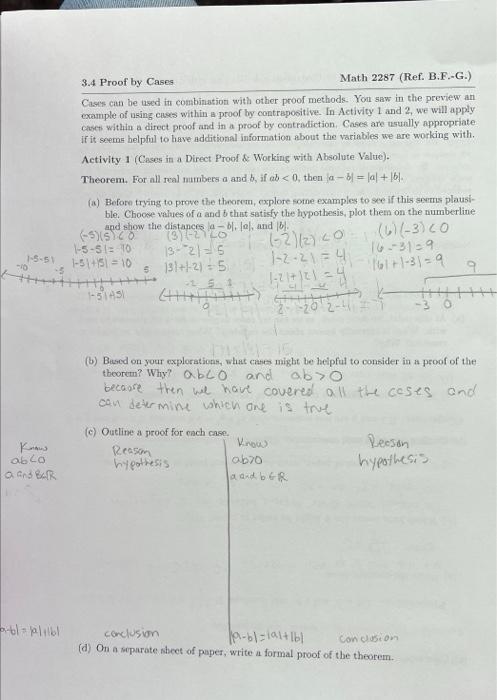 3.4 Proof by Cases Math 2287 (Ref. B.F.-G.)
Cases can be used in combination with other proof methods. You saw in the preview an
example of using cases within a proof by contrapositive. In Activity 1 and 2, we will apply
cases within a direct proof and in a proof by contradiction. Cases are usually appropriate
if it seems helpful to have additional information about the variables we are working with.
Activity 1 (Cases in a Direct Proof & Working with Absolute Value).
Theorem. For all real numbers a and b, if ab < 0, then |a − b| = |a| + |b|.
(a) Before trying to prove the theorem, explore some examples to see if this seems plausi-
ble. Choose values of a and b that satisfy the hypothesis, plot them on the numberline
and show the distances |a − b|, |a|, and |b|.
(-5)(5) < 0 (3)(-2) < 0 (-2)(2) < 0 (6)(-3) < 0
|-5-5| = 10 |3--2| = 5 |-2-2| = 4 |6--3| = 9
|-5|+|5| = 10 |3|+|-2| = 5 |-2|+|2| = 4 |6|+|-3| = 9
|-5-5|
-10 -5 5 -2 5 3 9
|-5|+|5| 0 -2 0 2 -3 0
(b) Based on your explorations, what cases might be helpful to consider in a proof of the
theorem? Why? ab<0 and ab>0
becaose then we have covered all the cases and
can determine which one is true
(c) Outline a proof for each case.
Know Reason Know Reason
ab<0 hypothesis ab>0 hypothesis
a and b∈R a and b∈R
a-b|=|a|+|b| conclusion |a-b|=|a|+|b| conclusion
(d) On a separate sheet of paper, write a formal proof of the theorem.